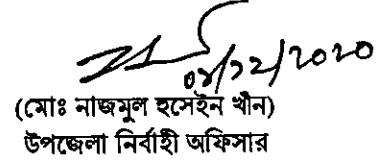 ০৮/১২/২০২০
(মোঃ নাজমুল হুসেইন খাঁন)
উপজেলা নির্বাহী অফিসার